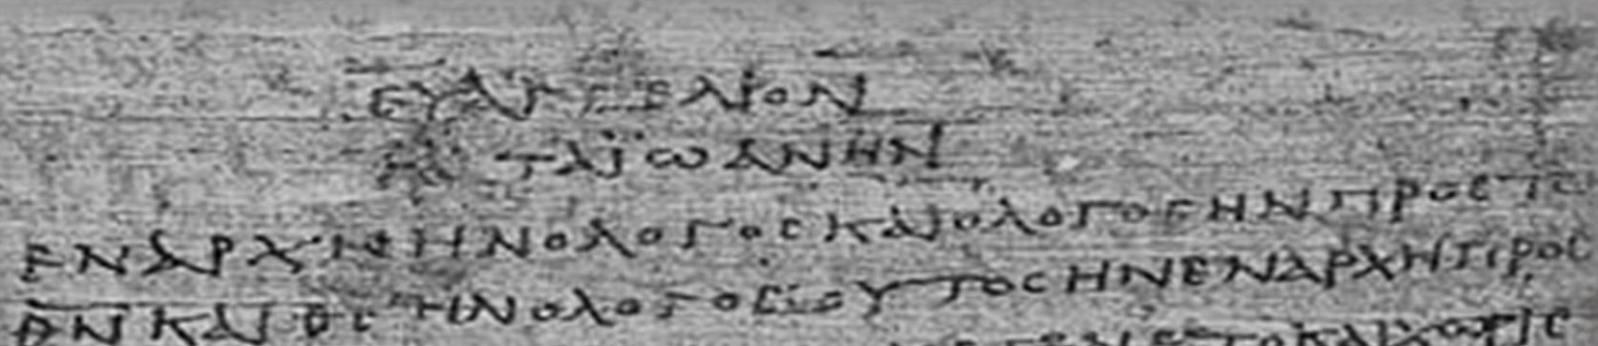 ΕΥΑΓΓΕΛΙΟΝ
ΚΑΤΑΪΩΑΝΗΝ
ΕΝΑΡΧΗΗΝΟΛΟΓΟϹΚΑΙΟΛΟΓΟϹΗΝΠΡΟϹΤΟ
Θ̅Ν̅ΚΑΙΘ̅Ϲ̅ΗΝΟΛΟΓΟϹΟΥΤΟϹΗΝΕΝΑΡΧΗΠΡΟϹ
ΚΑΙΧΩΡΙϹ